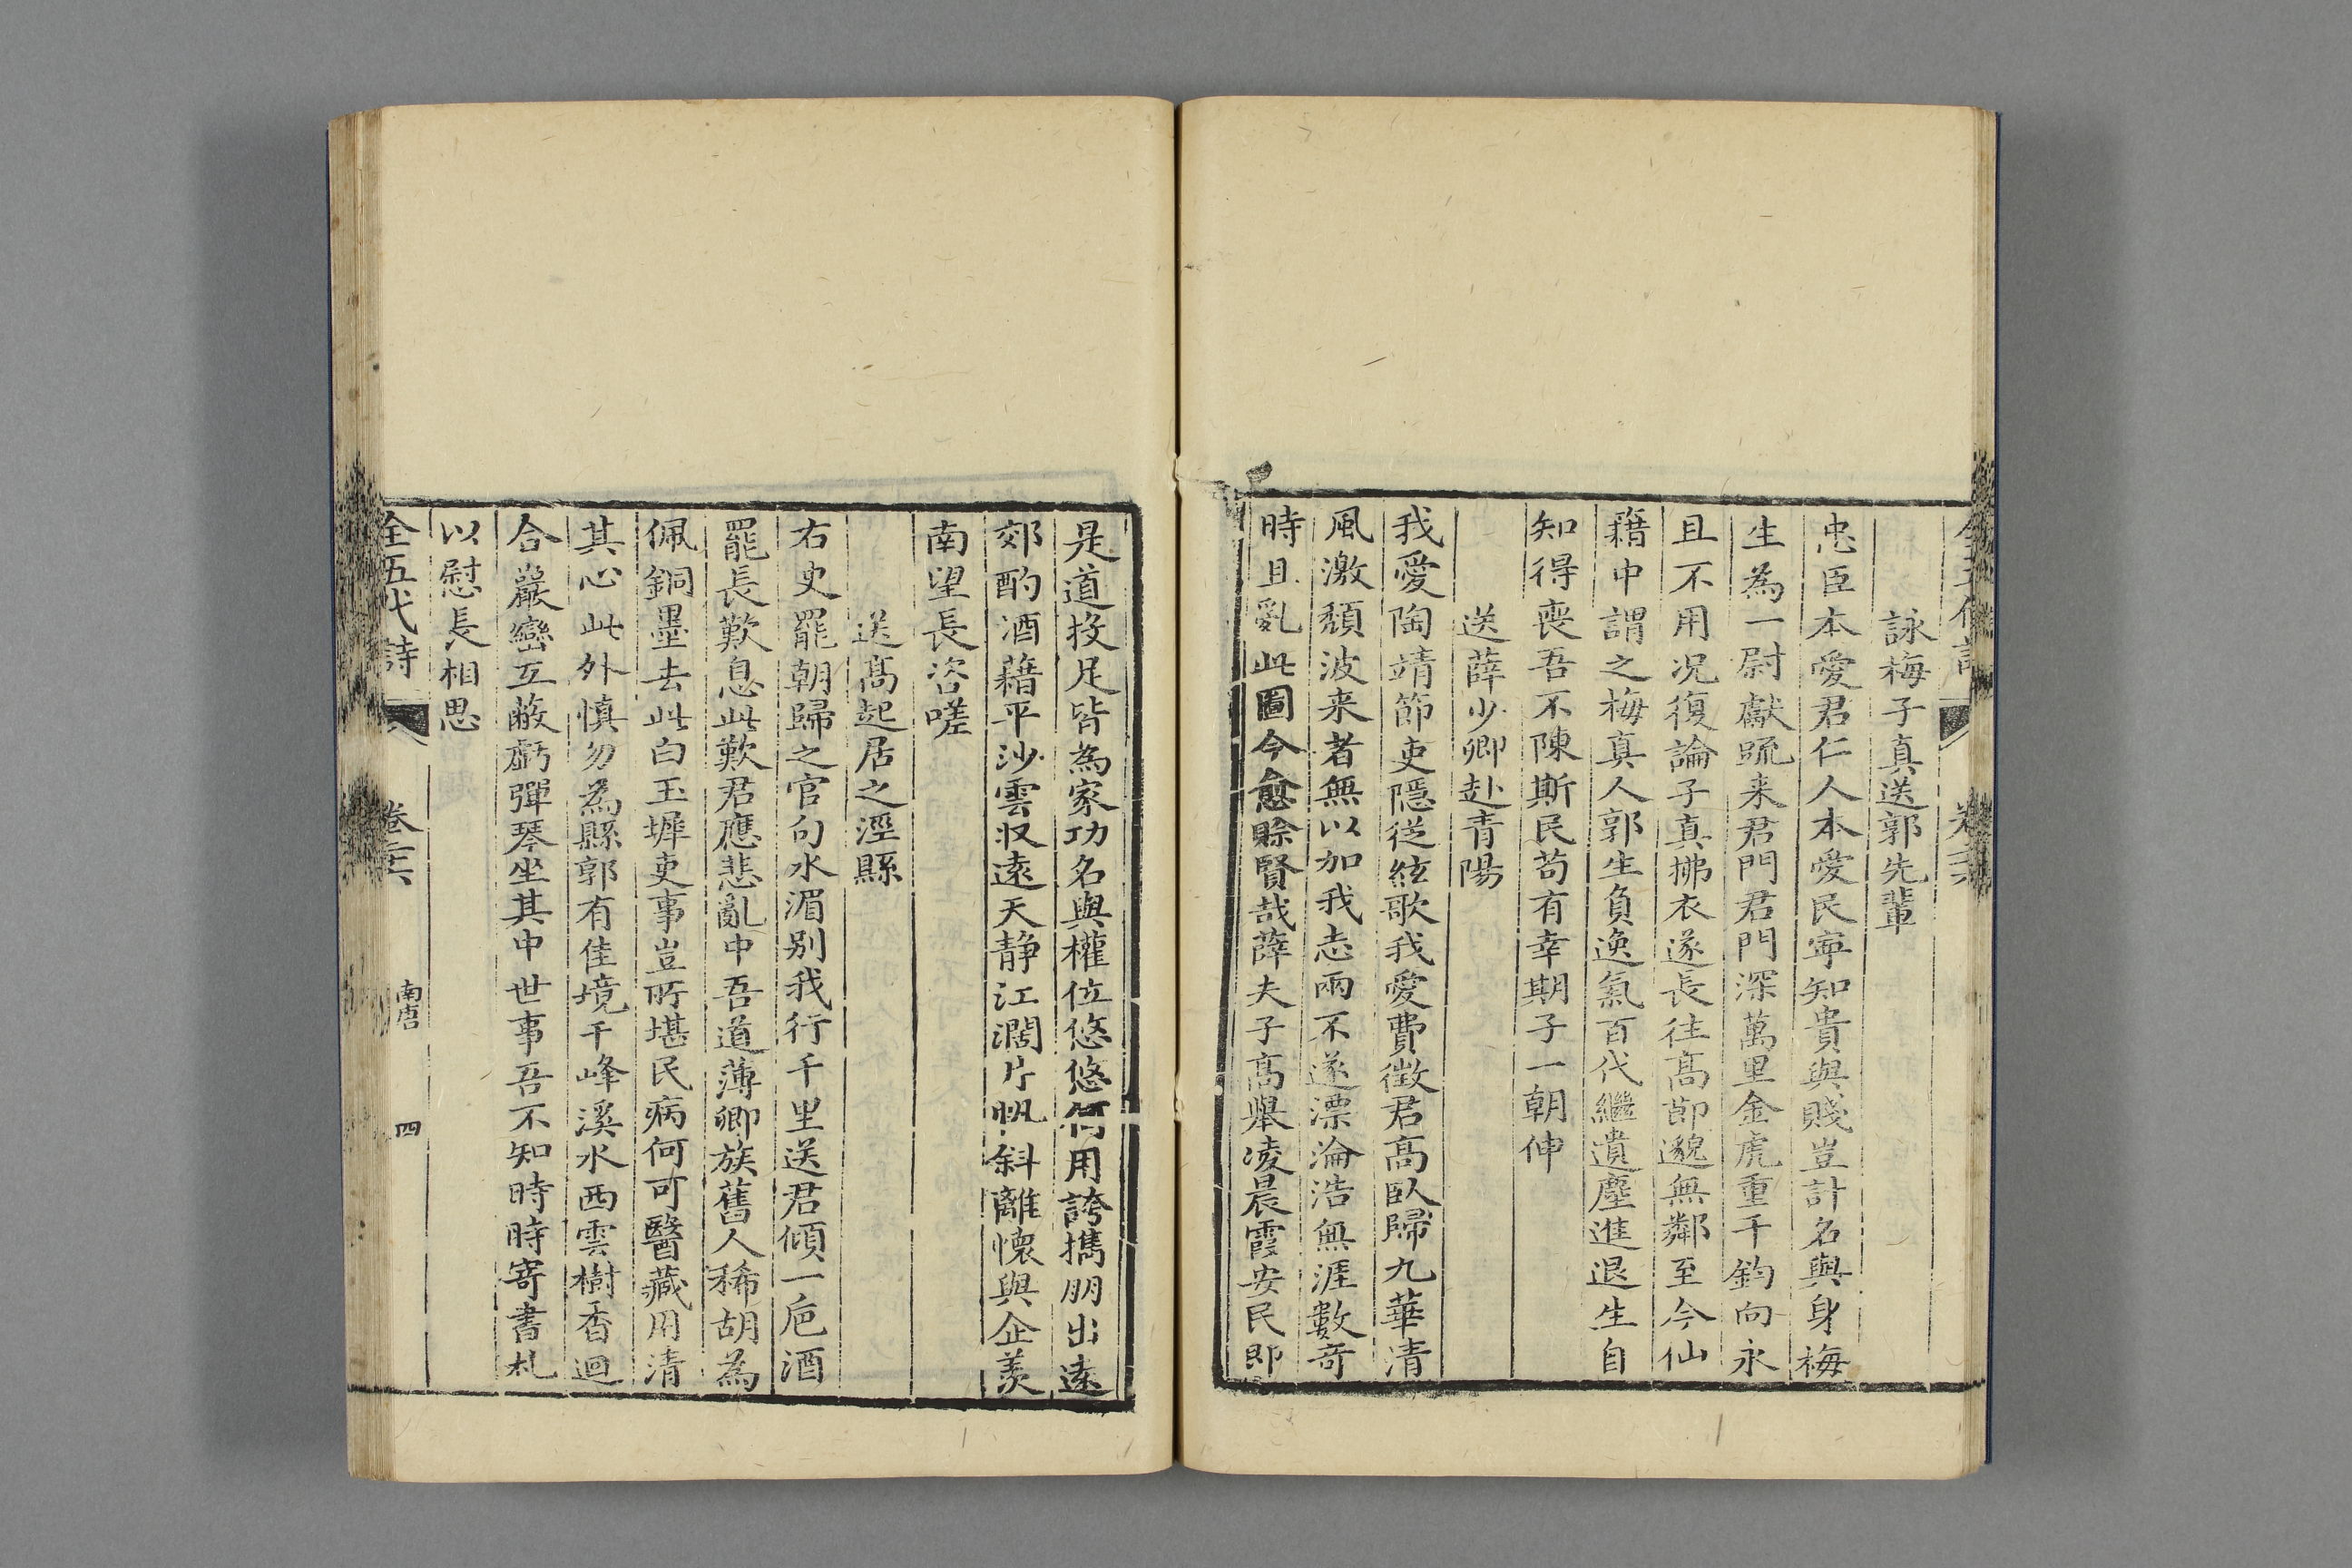 詠梅子真送郭先輩
忠臣本愛君仁人本愛民寧知貴與賤豈計名與身梅
生為一尉獻䟽来君門君門深萬里金虎重千鈞向永
且不用况復論子真拂衣遂長往髙節邈無鄰至今仙
籍中謂之梅真人郭生負逸氣百代繼遺塵進退生自
知得喪吾不陳斯民苟有幸期子一朝伸
送薛少卿赴青陽
我愛陶靖節吏隱從絃歌我愛費徴君髙臥歸九華清
風激頹波来者無以加我志兩不遂漂淪浩無涯數竒
時且亂此圖今愈賒賢哉薛夫子髙舉凌晨霞安民即
是道投足皆為家功名與權位悠悠何用誇攜朋出逺
郊酌酒藉平沙雲収逺天静江濶片帆斜離懷與企羡
南望長咨嗟
送髙起居之涇縣
右史罷朝歸之官句水湄别我行千里送君傾一巵酒
罷長歎息此歎君應悲亂中吾道薄卿族舊人稀胡為
佩銅墨去此白玉墀吏事豈所堪民病何可醫藏用清
其心此外慎勿為縣郭有佳境千峰溪水西雲樹香迴
合巖巒互蔽虧彈琴坐其中世事吾不知時時寄書札
以慰長相思
全五代詩 卷二十六 南唐 四